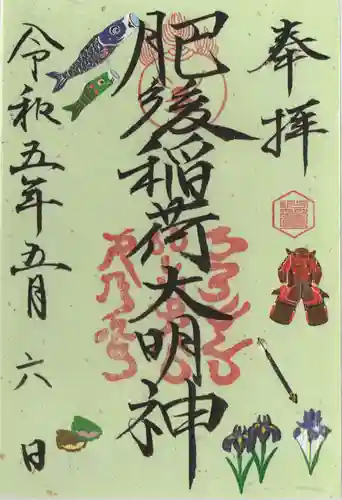 奉拝
肥後稲荷大明神
令和五年五月六日